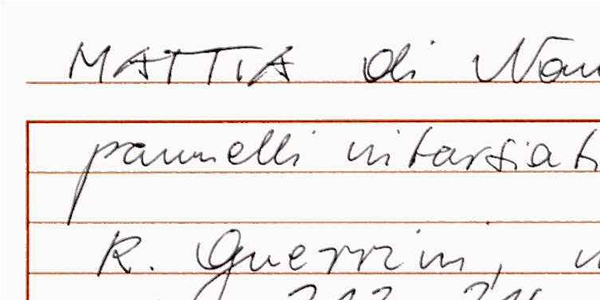 MATTIA di
pannelli intarsiati
R. Guerrini,